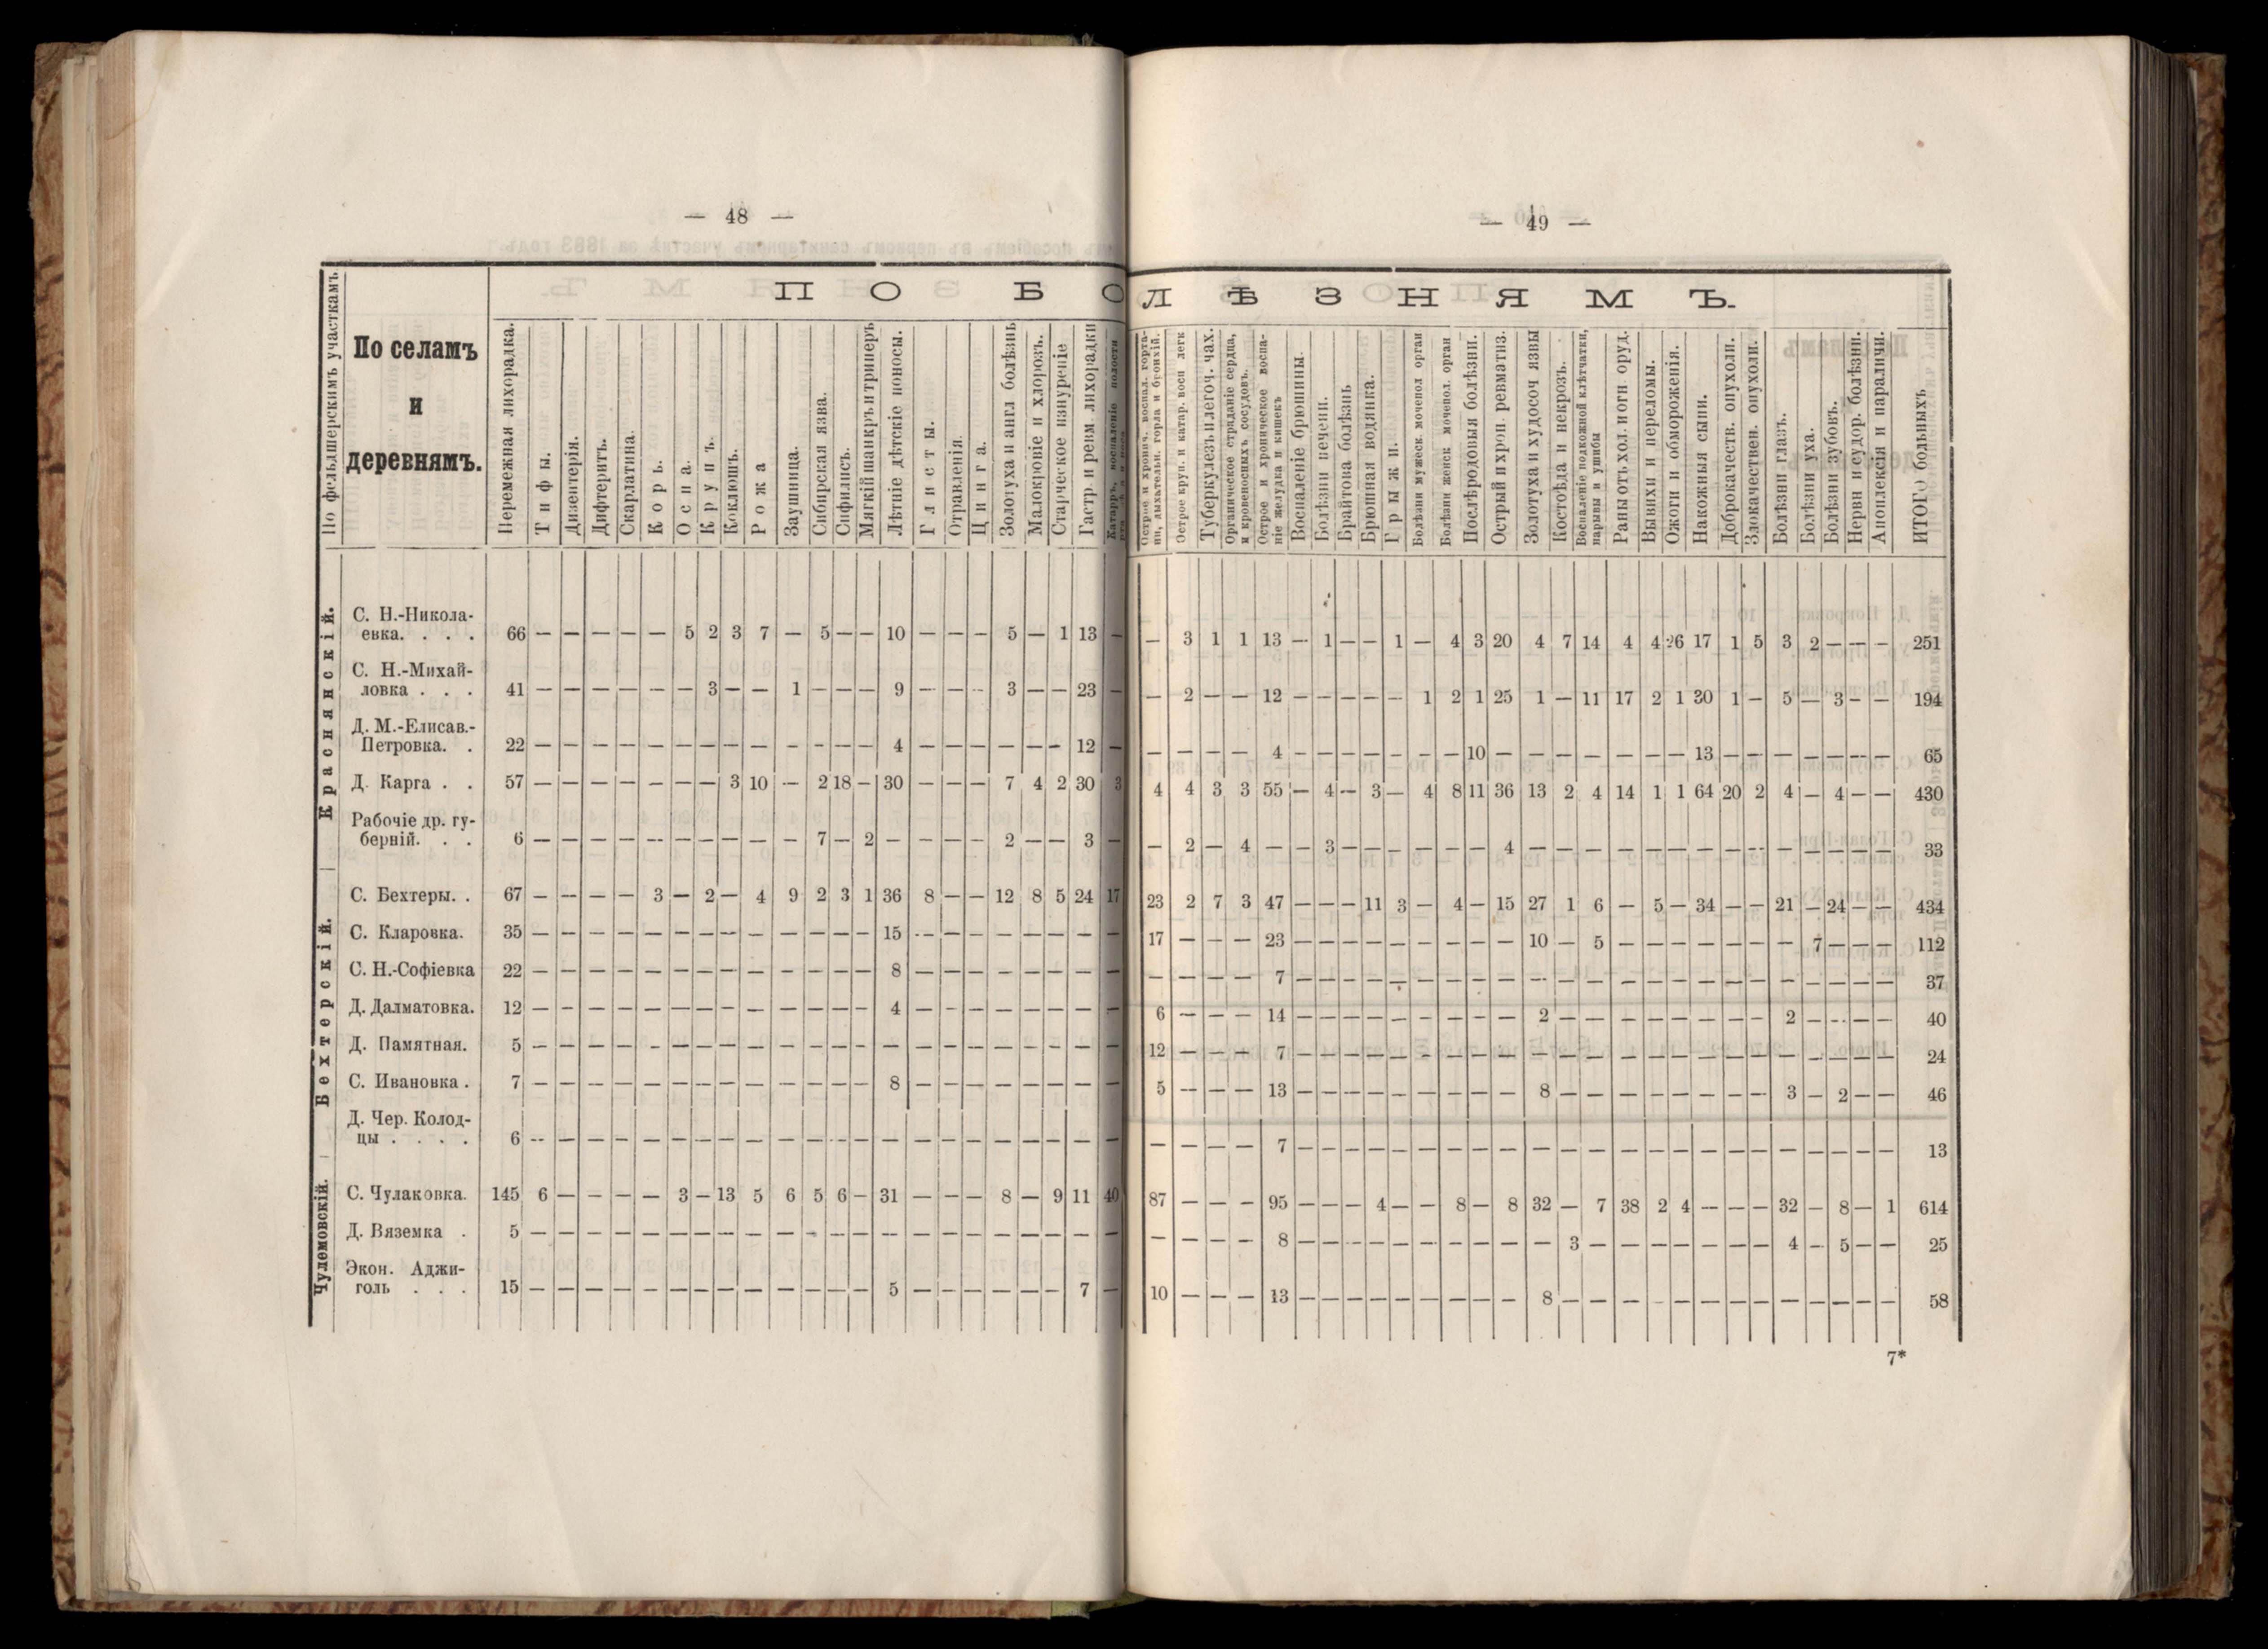 — 48 —
ПО БО
По фельдшерскимъ участкамъ.
По селамъ
и
деревнямъ.
Перемежная лихорадка.
Тифы.
Дизентерія.
Дифтеритъ.
Скарлатина.
Корь.
Оспа.
Крупъ.
Коклюшъ.
Рожа
Заушница.
Сибирская язва.
Сифилисъ.
Мягкій шанкръ и триперъ
Лѣтніе дѣтскіе поносы.
Глисты.
Отравленія.
Цинга.
Золотуха и англ болѣзнь
Малокровіе и хлорозъ.
Старческое изнуреніе
Гастр. и ревм. лихорадки
Катарръ, воспаленіе полости
Краснянскій.
С. Н.-Никола-
евка. . . . 66 — — — — — 5 2 3 7 — 5 — — 10 — — — 5 — 1 13 —
С. Н.-Михай-
ловка . . . 41 — — — — — — 3 — — 1 — — — 9 — — — 3 — — 23 —
Д. М.-Елисав.-
Петровка. . 22 — — — — — — — — — — — — — 4 — — — — — — 12 —
Д. Карга . . 57 — — — — — — — 3 10 — 2 18 — 30 — — — 7 4 2 30 3
Рабочіе др. гу-
берній. . . 6 — — — — — — — — — — 7 — 2 — — — — 2 — — 3 —
Бехтерскій.
С. Бехтеры. . 67 — — — — 3 — 2 — 4 9 2 3 1 36 8 — — 12 8 5 24 17
С. Кларовка. 35 — — — — — — — — — — — — — 15 — — — — — — — —
С. Н.-Софіевка 22 — — — — — — — — — — — — — 8 — — — — — — — —
Д. Далматовка. 12 — — — — — — — — — — — — — 4 — — — — — — — —
Д. Памятная. 5 — — — — — — — — — — — — — — — — — — — — — —
С. Ивановка . 7 — — — — — — — — — — — — — 8 — — — — — — — —
Д. Чер. Колод-
цы . . . . 6 — — — — — — — — — — — — — — — — — — — — — —
Чулемовскій.
С. Чулаковка. 145 6 — — — — 3 — 13 5 6 5 6 — 31 — — — 8 — 9 11 40
Д. Вяземка . 5 — — — — — — — — — — — — — — — — — — — — — —
Экон. Аджи-
голь . . . 15 — — — — — — — — — — — — — 5 — — — — — — 7 —
— 49 —
ЛѢЗНЯМЪ.
Острое и хронич. воспал. горта-
ни, дыхательн. горла и бронхій.
Острое круп. и катар. восп легк
Туберкулезъ и легоч. чах.
Органическое страданіе сердца,
и кровеносныхъ сосудовъ.
Острое и хроническое воспа-
ніе желудка и кишекъ
Воспаленіе брюшины.
Болѣзни печени.
Брайтова болѣзнь
Брюшная водянка.
Грыжи.
Болѣзни мужеск. мочепол орган
Болѣзни женск мочепол. орган
Послѣродовыя болѣзни.
Острый и хрон. ревматиз.
Золотуха и худосоч язвы
Костоѣда и некрозъ.
Воспаленіе подкожной клѣтчатки,
нарывы и ушибы
Раны отъ хол. и огн оруд.
Вывихи и переломы.
Ожоги и обмороженія.
Накожныя сыпи.
Доброкачеств. опухоли.
Злокачествен. опухоли.
Болѣзни глазъ.
Болѣзни уха.
Болѣзни зубовъ.
Нервн и судор. болѣзни.
Апоплексія и параличи.
ИТОГО больныхъ
— 3 1 1 13 — 1 — — 1 — 4 3 20 4 7 14 4 4 26 17 1 5 3 2 — — — 251
— 2 — — 12 — — — — — 1 2 1 25 1 — 11 17 2 1 30 1 — 5 — 3 — — 194
— — — — 4 — — — — — — — 10 — — — — — — — 13 — — — — — — — 65
4 4 3 3 55 — 4 — 3 — 4 8 11 36 13 2 4 14 1 1 64 20 2 4 — 4 — — 430
— 2 — 4 — — 3 — — — — — — 4 — — — — — — — — — — — — — — 33
23 2 7 3 47 — — — 11 3 — 4 — 15 27 1 6 — 5 — 34 — — 21 — 24 — — 434
17 — — — 23 — — — — — — — — — 10 — 5 — — — — — — — 7 — — — 112
— — — — 7 — — — — — — — — — — — — — — — — — — — — — — — 37
6 — — — 14 — — — — — — — — — 2 — — — — — — — — 2 — — — — 40
12 — — — 7 — — — — — — — — — — — — — — — — — — — — — — — 24
5 — — — 13 — — — — — — — — — 8 — — — — — — — — 3 — 2 — — 46
— — — — 7 — — — — — — — — — — — — — — — — — — — — — — — 13
87 — — — 95 — — — 4 — — 8 — 8 32 — 7 38 2 4 — — — 32 — 8 — 1 614
— — — — 8 — — — — — — — — — — 3 — — — — — — — 4 — 5 — — 25
10 — — — 13 — — — — — — — — — 8 — — — — — — — — — — — — — 58
7*